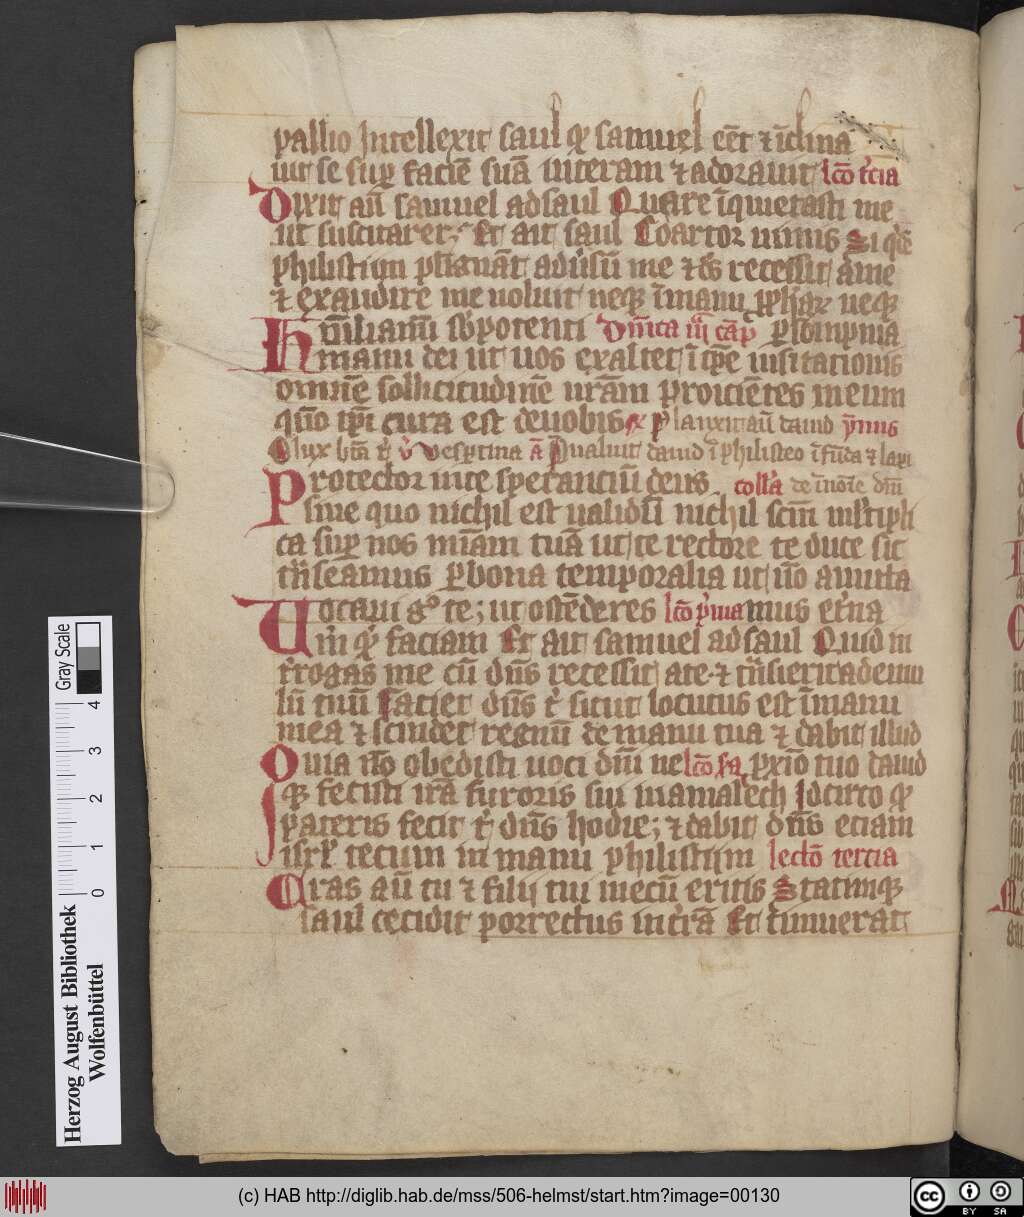 pallio Intellexit saul qͥ samuel eēt ⁊ īclina
uit se suꝑ faciē suā interam ⁊ adorauit lc̄o t̉cia
Dixit aū samuel adsaul Quare īquietasti me
ut suscitarer; Et ait saul Coartor nimis Si qͥdē
philistijm pugnāt adūsū me ⁊ ds̄ recessit ame
⁊ exaudire me uoluit neqꝫ īmanu ꝓphꝫaꝝ neqꝫ
Humiliam̄i sb̓potenti Dnīca iij cāp ꝑ sompnia
manu dei ut uos exaltet ītp̄e uisitationis
omnē sollicitudinē ur̄am proicientes meum
qm̄o ip̄i cura est deuobis ꝶ planxitaū dauid ymnus
O lux btā tͥ v̉ Vespertina ā Prualuit dauid īphilisteo īfūda ⁊ lapi
Protector inte sperantiū deus collā deīnoīe dn̄i
sine quo nichil est ualidū nichil scm̄ ml̓tipli
ca suꝑ nos mīam tuā ut te rectore te duce sic
tn̄seamus ꝑ bona temporalia ut nō amitta
Uocaui g° te; ut ostēderes lc̄o p̉ma mus et̉na
m̄ qͥ faciam Et ait samuel adsaul Quid in
t̉rogas me cū dn̄s recessit ate ⁊ tn̄sieritademu
lū tuū Faciet dn̄s tͥ sicut locutus est īmanu
mea ⁊ scindet regnū demanu tua ⁊ dabit illud
Quia nō obedisti uoci dn̄i ne lc̄o sͣa pxīo tuo dauid
qꝫ fecisti irā furoris sui inamalech Idcirco qͥ
pateris fecit tͥ dn̄s hodie; ⁊ dabit dn̄s etiam
isrl̓ tecum in manu philistijm lectō tercia
Cras aū tu ⁊ filij tui mecū eritis Statimqꝫ
saul cecidit porrectus int̉rā Et timuerat
Gray Scale
4
3
2
1
0
Herzog August Bibliothek
Wolfenbüttel
(c) HAB http://diglib.hab.de/mss/506-helmst/start.htm?image=00130
cc BY SA